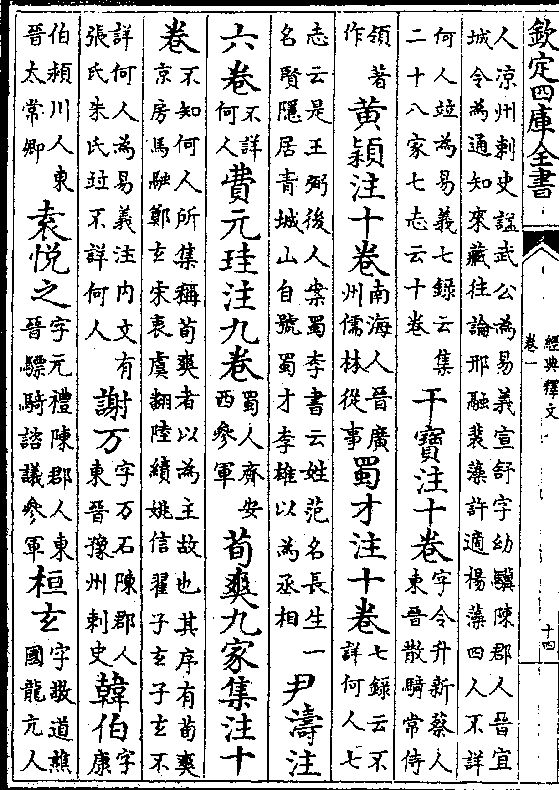 欽定四庫全書
經典釋文
卷一
十四
人涼州刺史諡武公為易義宣舒字幼驥陳郡人晉宜城令為通知來藏往論邢融裴藻許適楊藻四人不詳
何人竝為易義七錄云集二十八家七志云十卷干寶注十卷字令升新蔡人東晉散騎常侍
領著作黃穎注十卷南海人晉廣州儒林從事蜀才注十卷七錄云不詳何人七
志云是王弼後人案蜀李書云姓范名長生一名賢隱居青城山自號蜀才李雄以為丞相尹濤注
六卷不詳何人費元珪注九卷蜀人齊安西參軍荀爽九家集注十
卷不知何人所集稱荀爽者以為主故也其序有荀爽京房馬融鄭玄宋衷虞翻陸績姚信翟子玄子玄不
詳何人為易義注內文有張氏朱氏竝不詳何人謝万字万石陳郡人東晉豫州刺史韓伯字康
伯潁川人東晉太常卿袁悅之字元禮陳郡人東晉驃騎諮議參軍桓玄字敬道譙國龍亢人